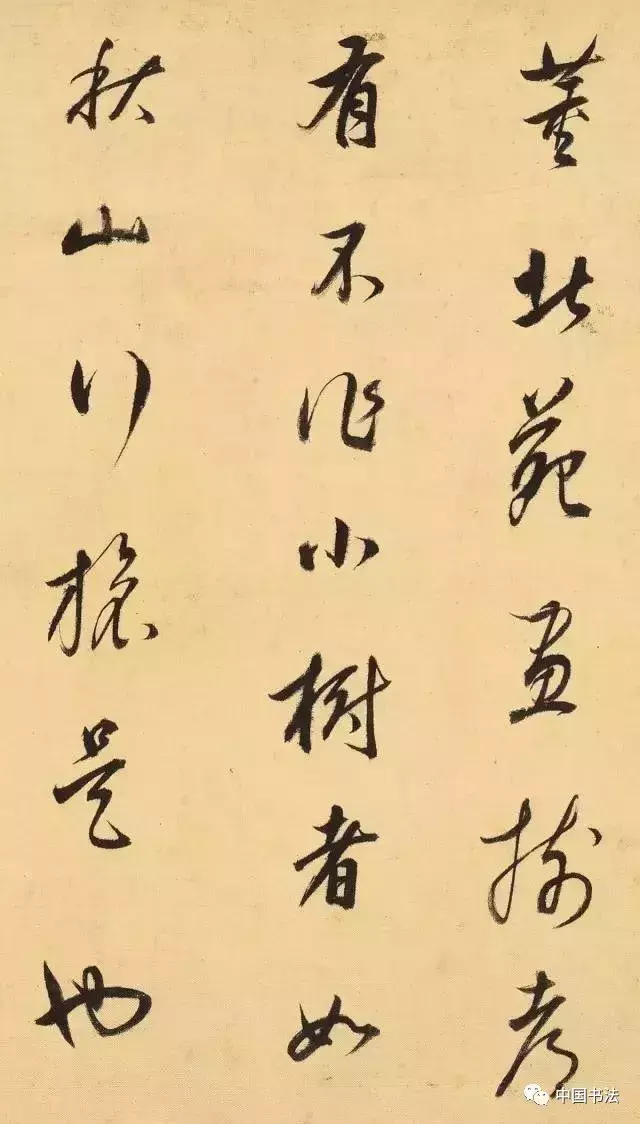 董北苑畫樹多
有不作小樹者如
秋山行旅是也
中国书法